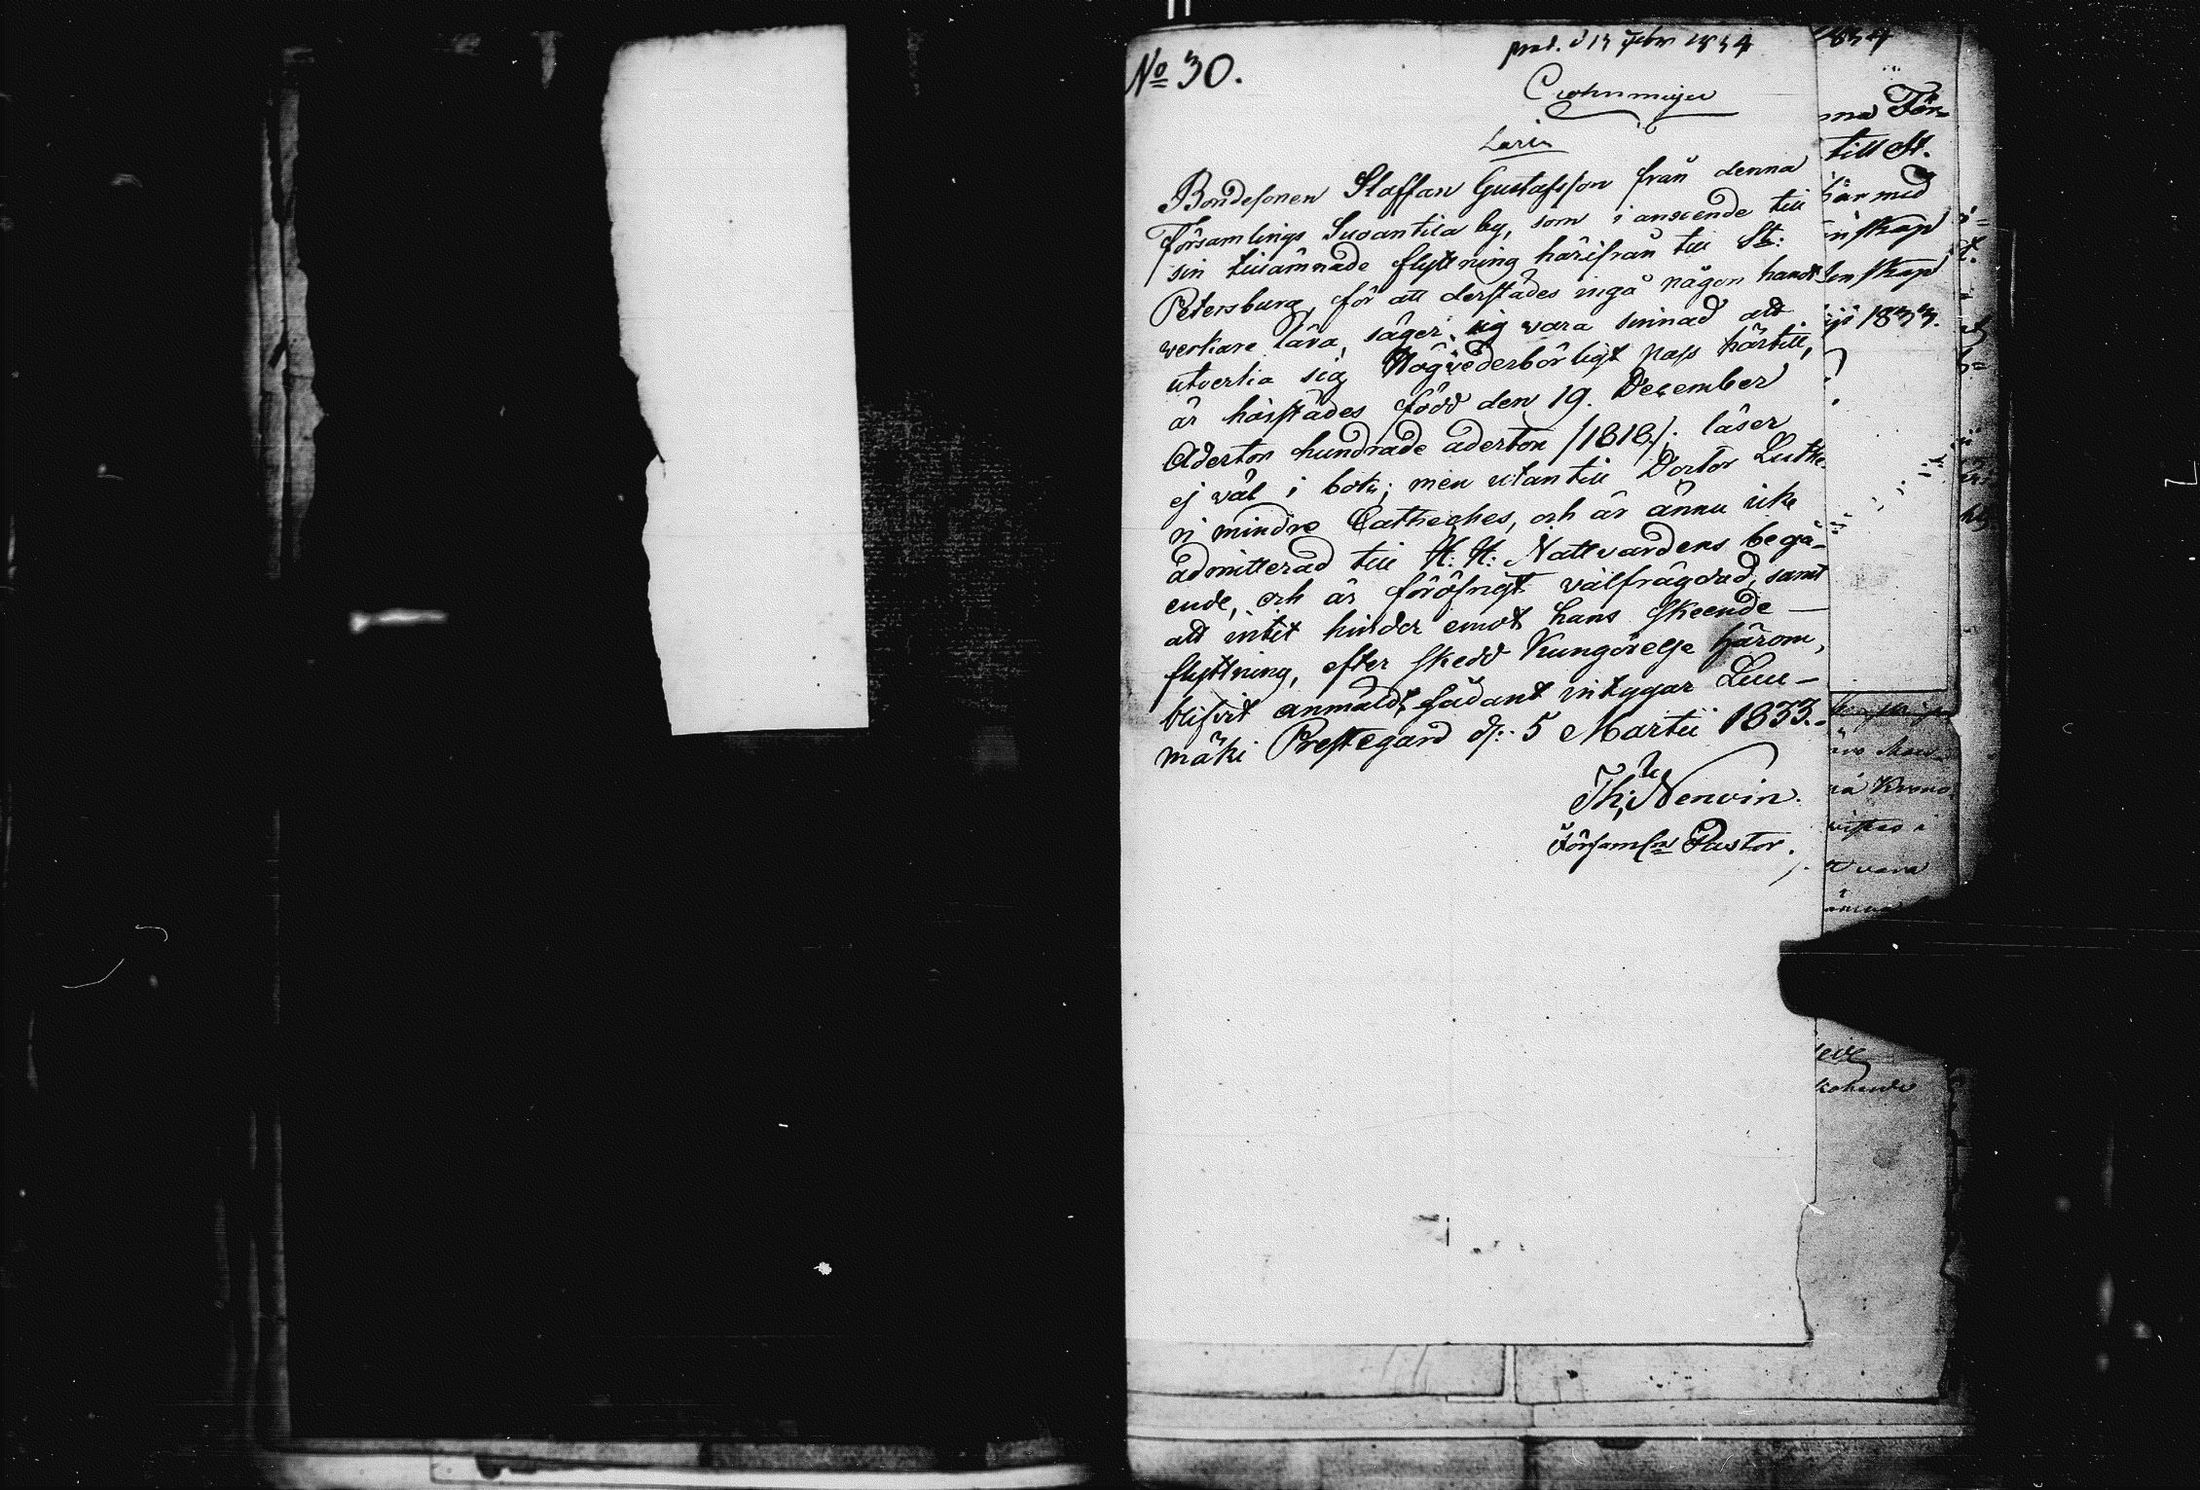 No 30.
prod. d 13 Febr 1834
Crohnmeijer
Bondesonen Staffan Gustafsson från denna
Församlings Suoantila by, som i anseende till
sin tillämnade flyttning härifrån till St:
Petersburg, för att derstädes ingå någon handt
verkare lära, säger sig vara sinnad att
utverka sig Högvederbörligt pass härtill,
är härstädes född den 19. December
Aderton hundrade aderton /1818/; läser
ej väl i bok; men utantill Doctor Luthe
ri mindre Catheches, och är ännu icke
admitterad till H. H. Nattvardens begå-
ende, och är föröfrigt välfrägdad, samt
att intet hinder emot hans skeende —
flyttning, efter skedd Kungörelse härom,
blifvit anmäldt, sådant intygar Luu-
mäki Prestegård d: 5 Martii 1833.
Th: Nenvin.
Församl: Pastor.
1834
na För-
till St.
här med
nskap
enskap
1833.